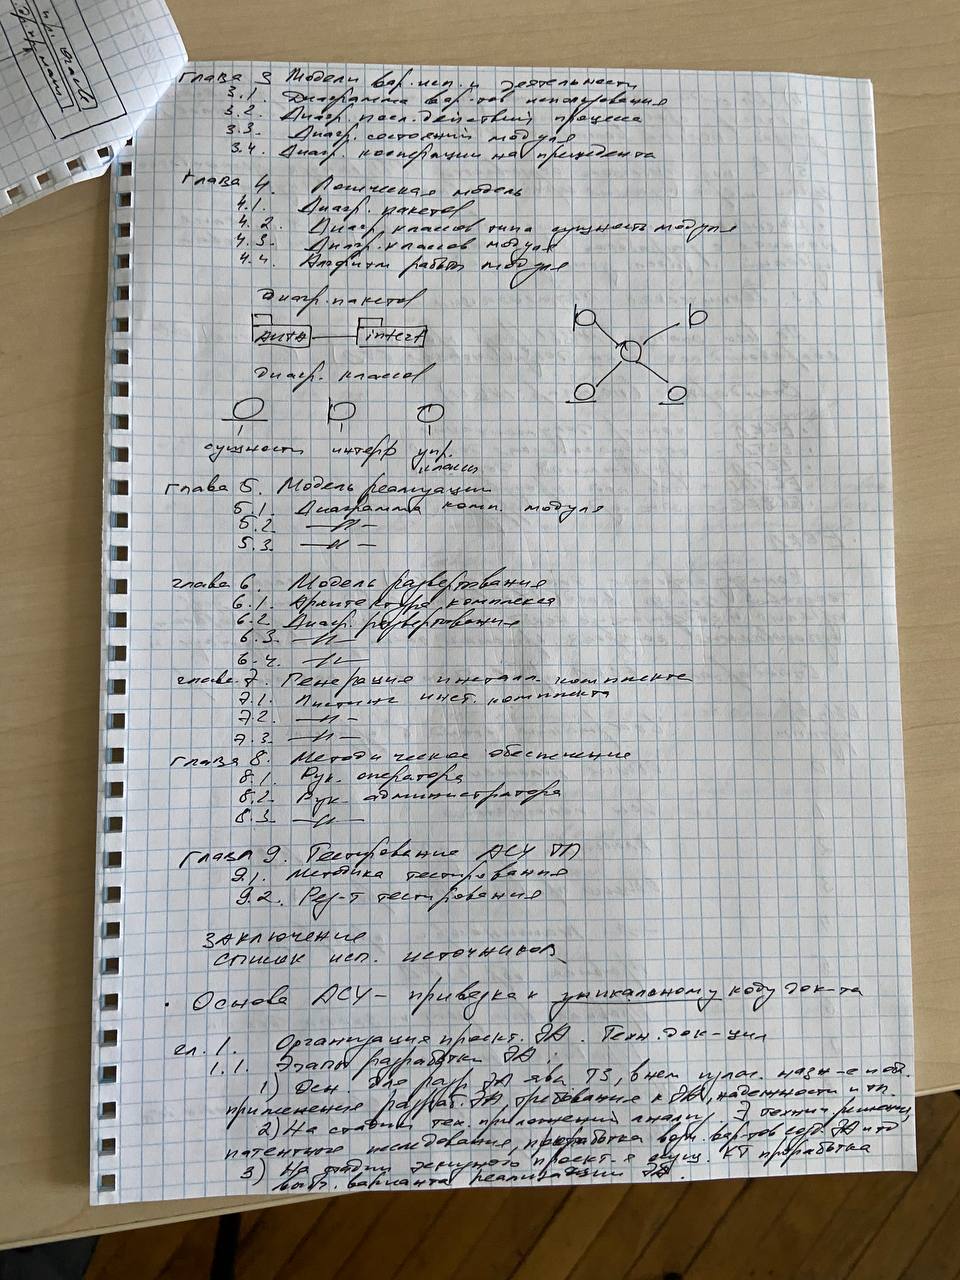 Глава 3 Модели вар. исп. и деятельности
3.1. Диаграмма вар-тов использования
3.2. Диагр. посл. действий процесса
3.3. Диагр. состояний модуля
3.4. Диагр. кооперации на прецедента
Глава 4. Логическая модель
4.1. Диагр. пакетов
4.2. Диагр. классов типа сущность модуля
4.3. Диагр. классов модуля
4.4. Алгоритм работы модуля
Диагр. пакетов
интерf
Диагр. классов
сущности интерф упр.
классы
Глава 5. Модель реализации
5.1. Диаграмма комп. модуля
5.2. —//—
5.3. —//—
глава 6. Модель развертывания
6.1. Архитектура комплекса
6.2. Диагр. развертывания
6.3. —//—
6.4. —//—
глава 7. Генерация инсталл. комплекта
7.1. Листинг инст. комплекта
7.2. —//—
7.3. —//—
глава 8. Методическое обеспечение
8.1. Рук. оператора
8.2. Рук. администратора
8.3. —//—
глава 9. Тестирование АСУ ТП
9.1. Методика тестирования
9.2. Рез-т тестирования
Заключение
Список исп. источников
• Основа АСУ – привязка к уникальному коду док-та
гл. 1. Организация проект. ЭА. Техн. док-ции
1.1. Этапы разработки ЭА:
1) Осн. для разр. ЭА явл. ТЗ, в нем излаг. назн-е и обл.
применения разраб. ЭА, требования к ЭА, надежности и тп.
2) На стадии тех. предложений анализ. технич. решения,
патентного исследования, проработка вар-тов ЭА и тд
3) На стадии эскизного проект-я осущ. КТ проработка
выбр. варианта реализации ЭА.